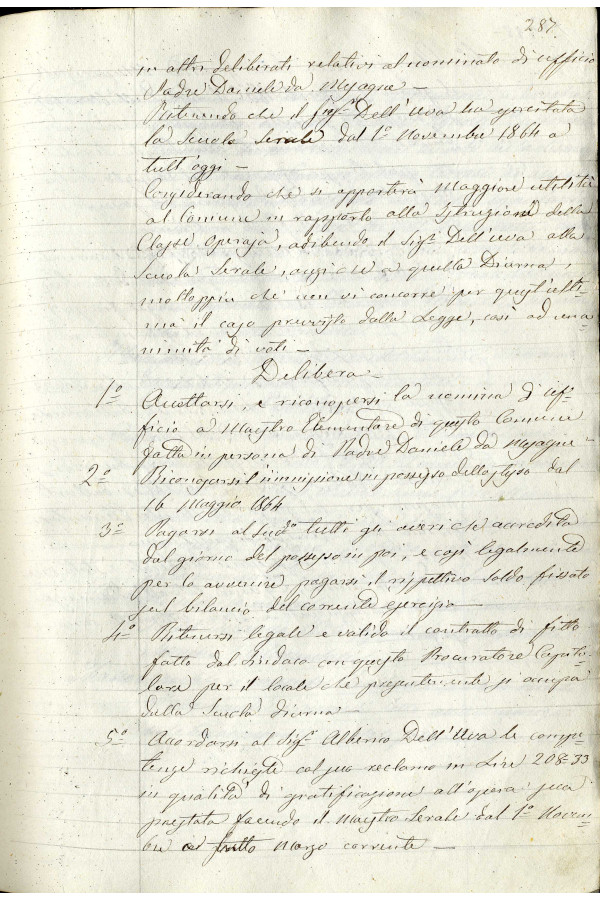 287.
in altri deliberati relativi al nominato di ufficio
Padre Daniele da Mesagne —
Ritenendo che il Sigr Dell'Uva ha
la Scuola Serale dal 1º Novembre 1864 a
tutt'oggi —
Considerando che si apporterà maggiore utilità
al Comune in rapporto alla Istruzione della
Classe operaja, adibendo il Sigr Dell'Uva alla
Scuola Serale, anziche a quella Diurna,
moltoppiù che non vi concorre per quest'ulti-
ma il caso previsto dalla Legge, così ad una-
nimità di voti —
Delibera —
1º Accettarsi, e riconoscersi la nomina d'uf-
ficio a Maestro Elementare di questo Comune
fatta in persona di Padre Daniele da Mesagne —
2º Riconoscersi l'immissione in possesso dello stesso dal
16 Maggio 1864
3º Pagarsi al Sudo tutti gli averi che accredita
dal giorno del possesso in poi, e così legalmente
per lo avvenire pagarsi il rispettivo soldo fissato
sul bilancio del corrente esercizio —
4º Ritenersi legale e valido il contratto di fitto
fatto dal Sindaco con questo Procuratore Capito-
lare per il locale che presentemente si occupa
dalla Scuola diurna —
5º Accordarsi al Sigr Alberico Dell'Uva le compe-
tenze richieste col suo reclamo in Lire 208=33
in qualità di gratificazione all'opera sua
prestata facendo il Maestro Serale dal 1º Novem-
bre a tutto Marzo corrente —